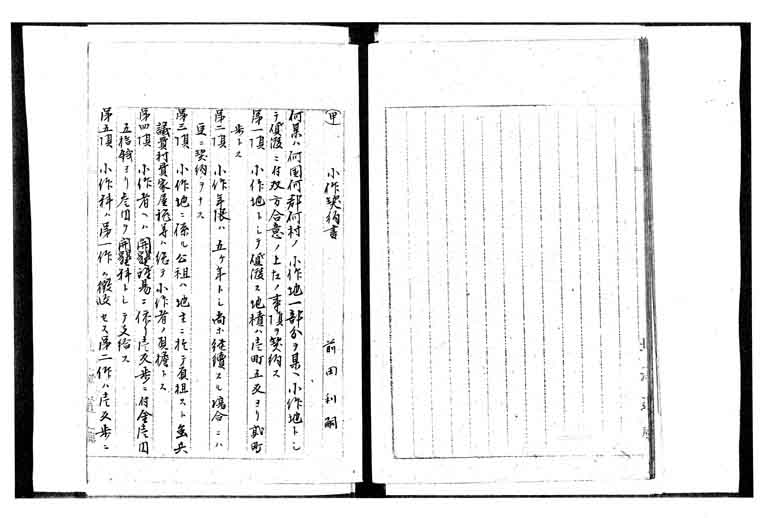 甲
小作契約書　前田利嗣
何某ハ何国何郡何村ノ小作地一部分ヲ某ヘ小作地トシ
テ貸渡ニ付双方合意ノ上左ノ事項ヲ契約ス
第一項　小作地トシテ貸渡ス地積ハ壱町五反ヨリ貳町
歩トス
第二項　小作年限ハ五ケ年トシ尚ホ継續スル場合ニハ
更ニ契約ヲナス
第三項　小作地ニ係ル公租ハ地主ニ於テ負担スト雖共
議費村費家屋税等ハ総テ小作者ノ負擔トス
第四項　小作者ヘハ開墾 場ニ依リ壱反歩ニ付金壱円
五拾銭ヨリ 円 開墾料トシテ支給ス
第五項　小作料ハ第一作 徴収セス第二作ハ壱反歩ニ